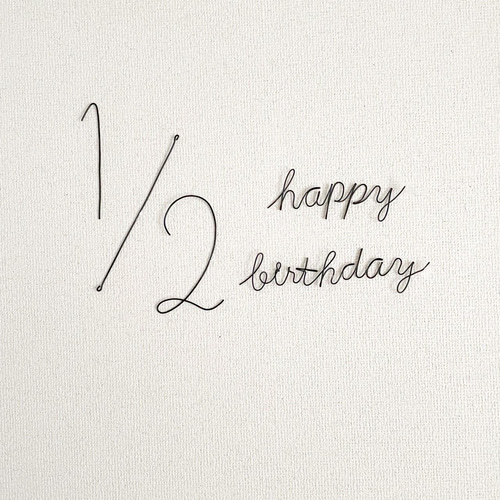 1/2
happy
birthday